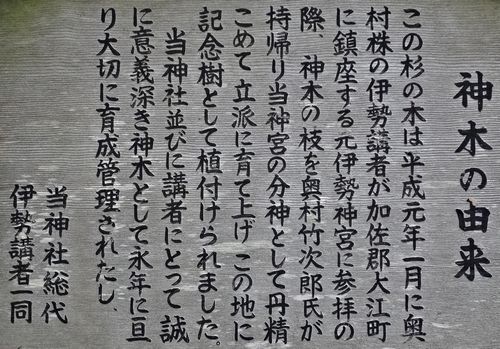 神木の由来
この杉の木は平成元年一月に奥
村株の伊勢講者が加佐郡大江町
に鎮座する元伊勢神宮に参拝の
際、神木の枝を奥村竹次郎氏が
持帰り当神宮の分神として丹精
こめて立派に育て上げこの地に
記念樹として植付けられました。
当神社並びに講者にとって誠
に意義深き神木として永年に亘
り大切に育成管理されたし、
当神社総代
伊勢講者一同